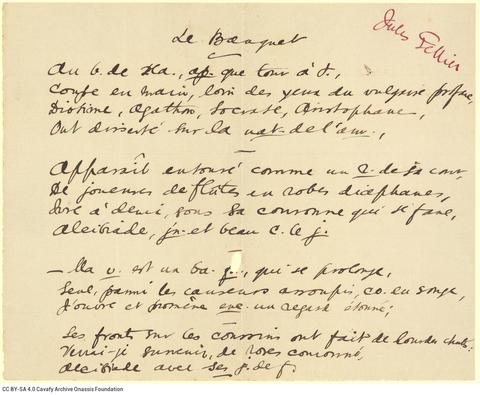 Le Banquet
Jules Tellier
Au b. de Ma., ap. que tour à t.,
Coupe en main, loin des yeux du vulgaire profane,
Diotime, Agathon, Socrate, Aristophane,
Ont disserté sur la nat. de l'am.,
Apparaît entouré comme un r. de sa cour,
De joueuses de flûtes en robes diaphanes,
Ivre à demi, sous sa couronne qui se fane,
Alcibiade, jn. et beau c. le j.
— Ma v. est un ba. g., qui se prolonge,
Seul, parmi les causeurs assoupis, co. en songe,
J'ouvre et promène enc. un regard étonné;
Les fronts sur les coussins ont fait de lourdes chutes:
Verrai-je survenir, de roses couronné,
Alcibiade avec ses j. de f.
CC BY-SA 4.0 Cavafy Archive Onassis Foundation